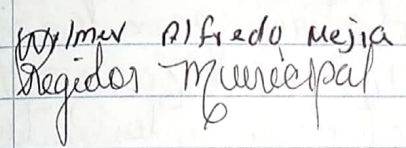 Wylmer Alfredo Mejia
Regidor Municipal